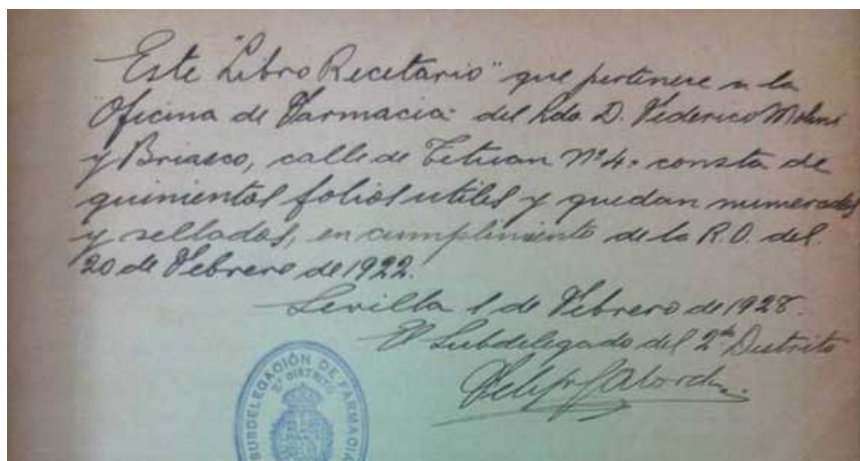 Este "Libro Recetario" que pertenece a la
Oficina de Farmacia del Ldo D. Federico Molini
y Briasco, calle de Tetuan Nº 4: consta de
quinientos folios utiles y quedan numerados
y sellados, en cumplimiento de la R.O. del
20 de Febrero de 1922.
Sevilla 1 de Febrero de 1928.
El Subdelegado del 2º Distrito
SUBDELEGACIÓN DE FARMACIA
2º DISTRITO